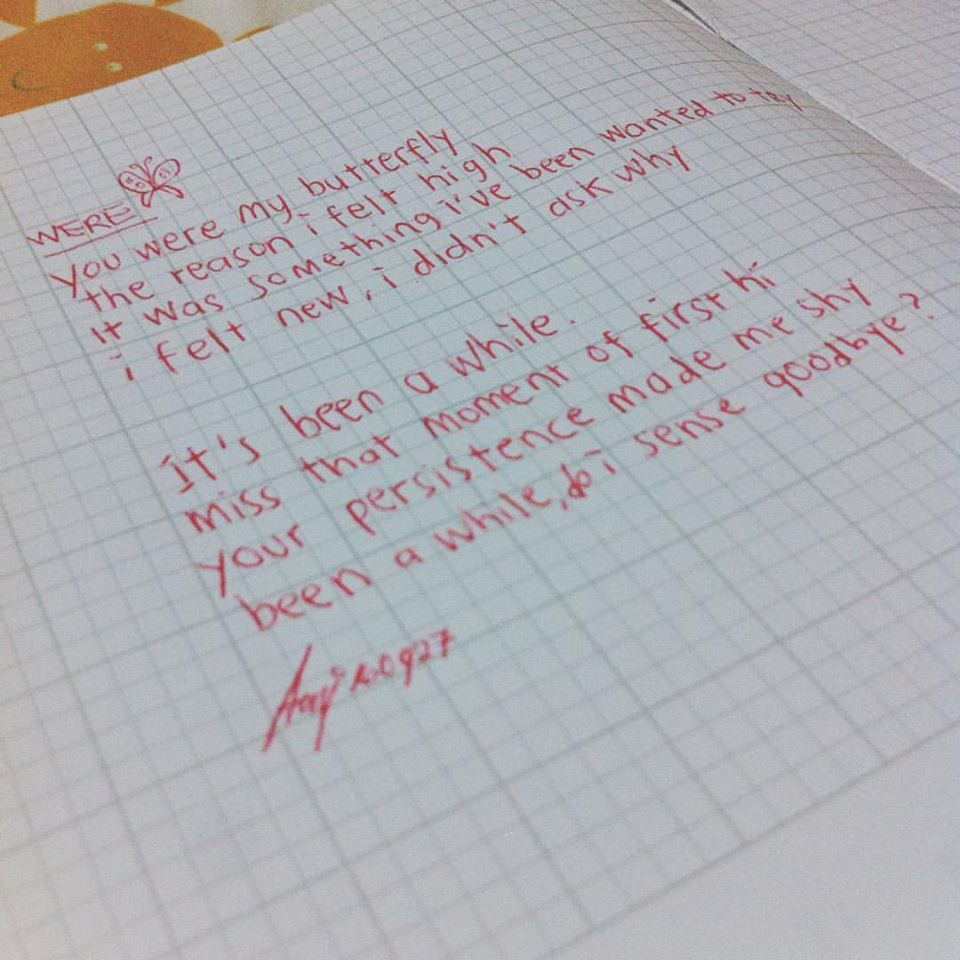 WERE
you were my butterfly
the reason i felt high
It was something i've been wanted to try
i felt new, i didn't ask why
It's been a while.
miss that moment of first hi
your persistence made me shy
been a while, do i sense goodbye?